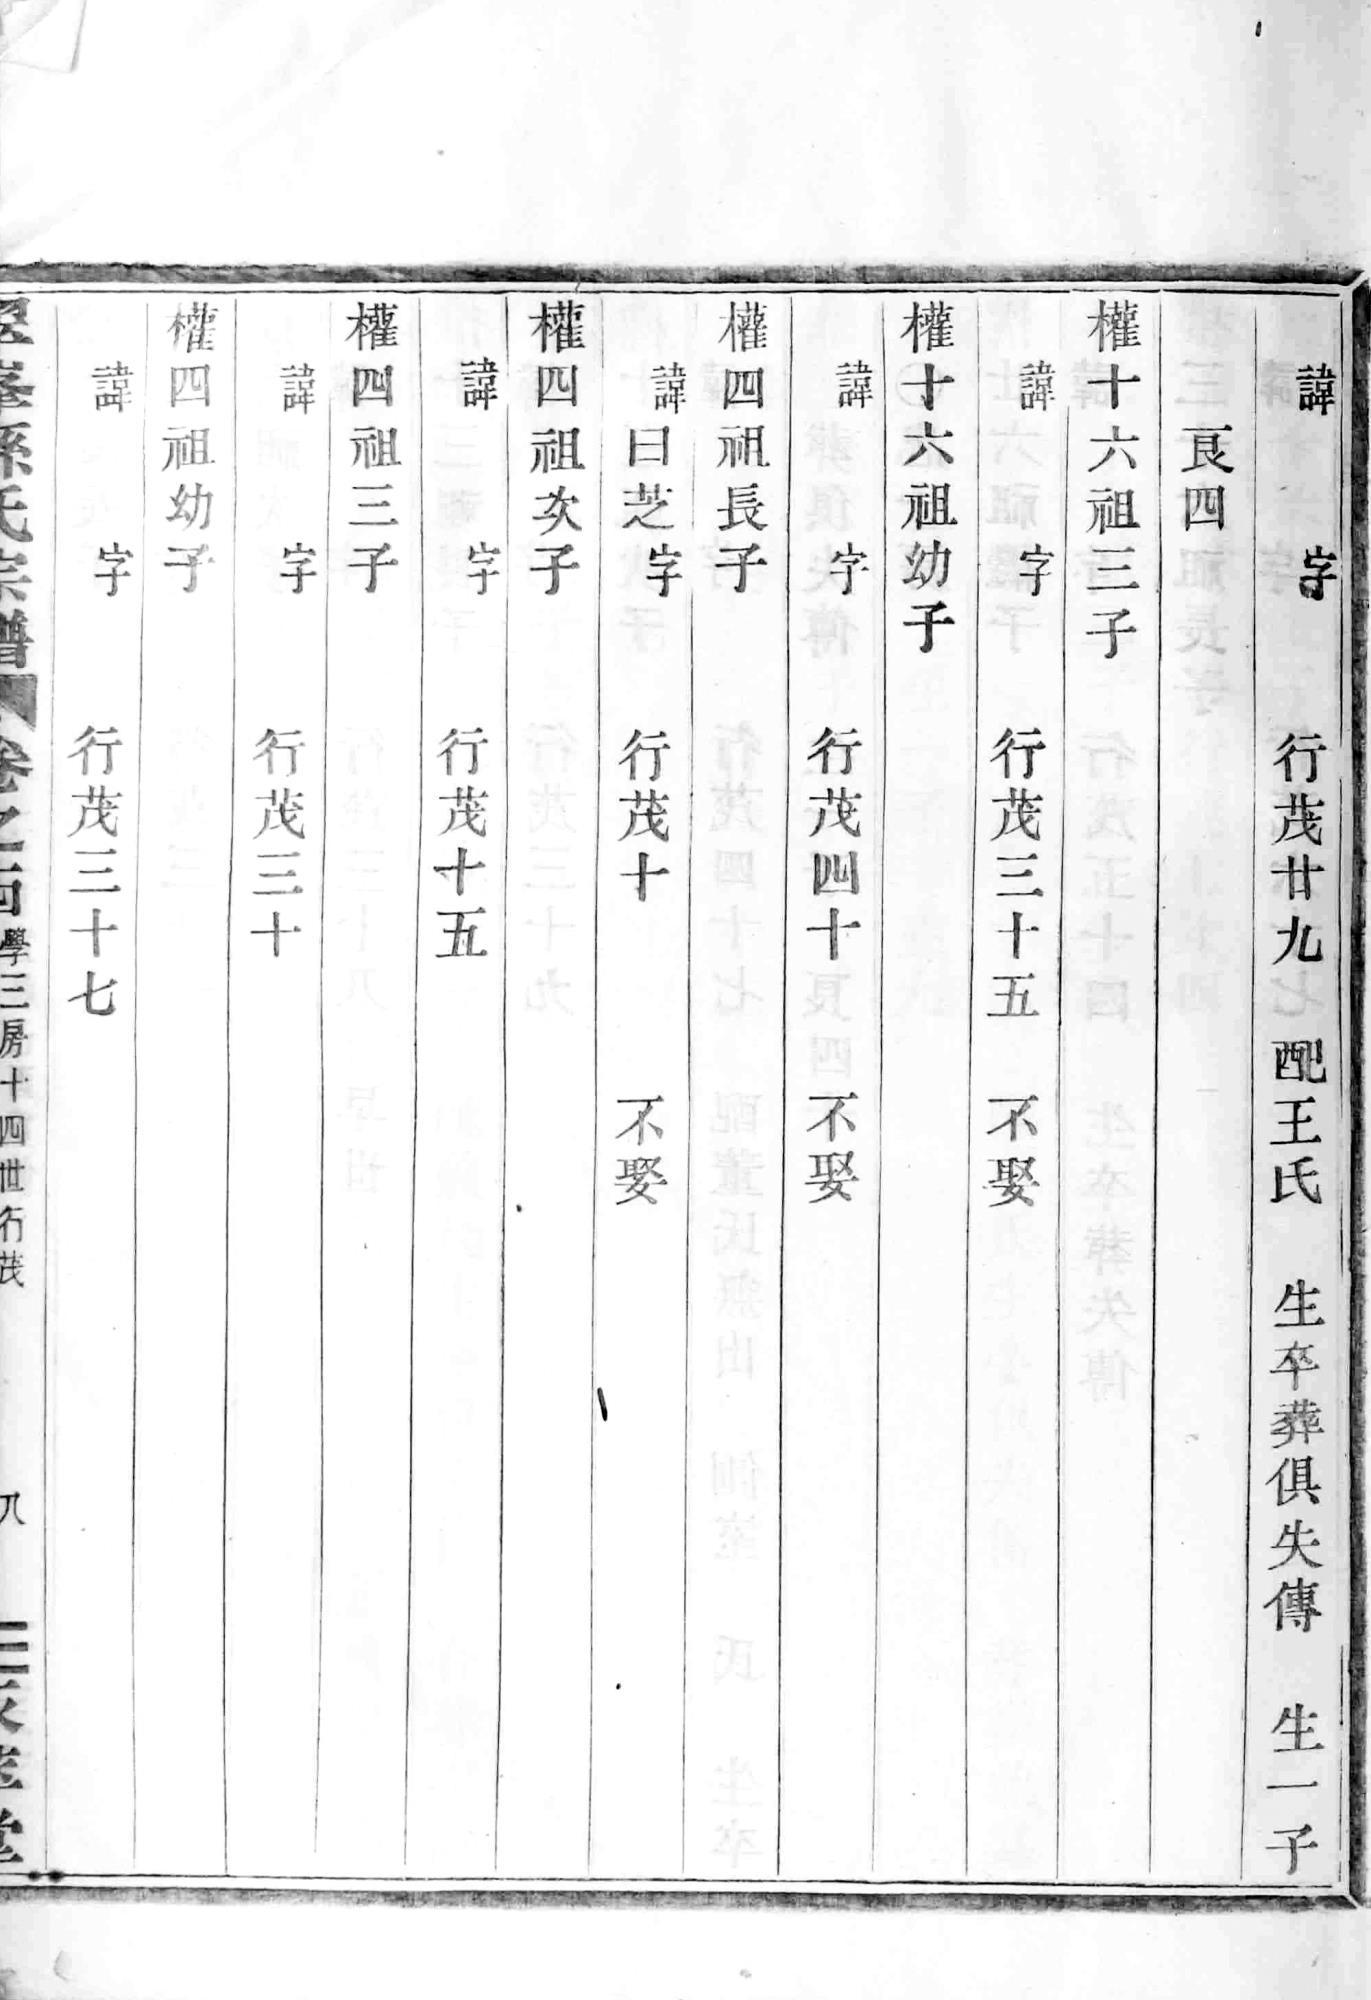 諱 字 行茂廿九 配王氏 生卒葬俱失傳 生一子
良四
權十六祖三子
諱 字 行茂三十五 不娶
權十六祖幼子
諱 字 行茂四十 不娶
權四祖長子
諱曰芝 字 行茂十 不娶
權四祖次子
諱 字 行茂十五
權四祖三子
諱 字 行茂三十
權四祖幼子
諱 字 行茂三十七
孫氏宗譜 卷之 學三房十四世行茂 八 堂